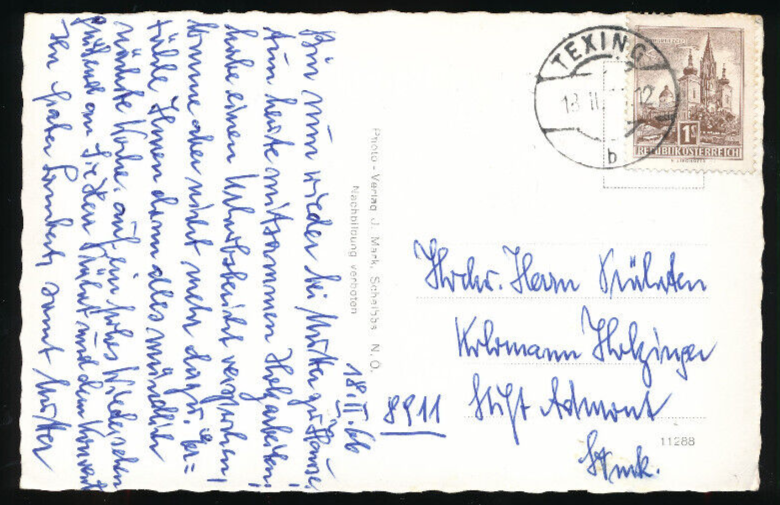 18. II. 66
Bin nun wieder bei Mutter zu Hause,
tun heute mitsammen Holzarbeiten!
habe einen Urlaubsbericht versprochen,
komme aber nicht mehr dazu, er=
zähle Ihnen dann alles mündlich
nächste Woche. auf ein frohes Wiedersehen
grüßend am Prälat und dem Konvent
Ihr Pater Lambert, samt Mutter
Photo-Verlag J. Mark, Scheibbs N. Ö.
Nachbildung verboten
TEXING
18. II. 12
b
1S
REPUBLIK ÖSTERREICH
Hochw. Herrn Prälaten
Kolomann Holzinger
8911 Stift Admont
Stmk.
11288